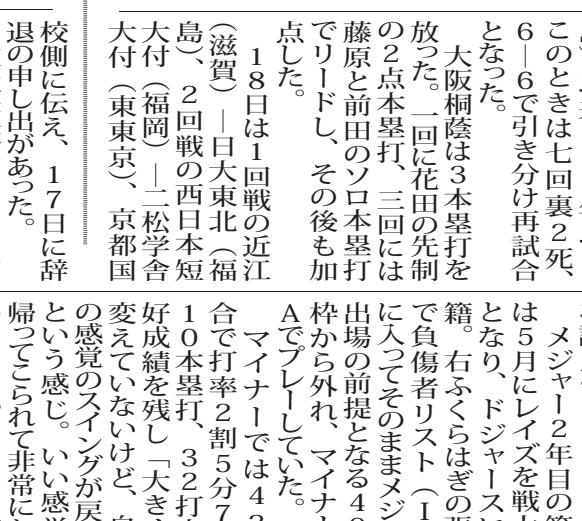 このときは七回裏2死、
6―6で引き分け再試合
となった。
大阪桐蔭は3本塁打を
放った。一回に花田の先制
の2点本塁打、三回には
藤原と前田のソロ本塁打
でリードし、その後も加
点した。
18日は1回戦の近江
（滋賀）―日大東北（福
島）、2回戦の西日本短
大付（福岡）―二松学舎
大付（東東京）、京都国
校側に伝え、17日に辞
退の申し出があった。
メジャー2年目の筒
は5月にレイズを戦力
となり、ドジャースに
籍。右ふくらはぎの張
で負傷者リスト（I
に入ってそのままメジ
出場の前提となる4
枠から外れ、マイナ
Aでプレーしていた。
マイナーでは43
合で打率2割5分7
10本塁打、32打
好成績を残し「大き
変えていないけど、自
の感覚のスイングが戻
という感じ。いい感覚
帰ってこられて非常に